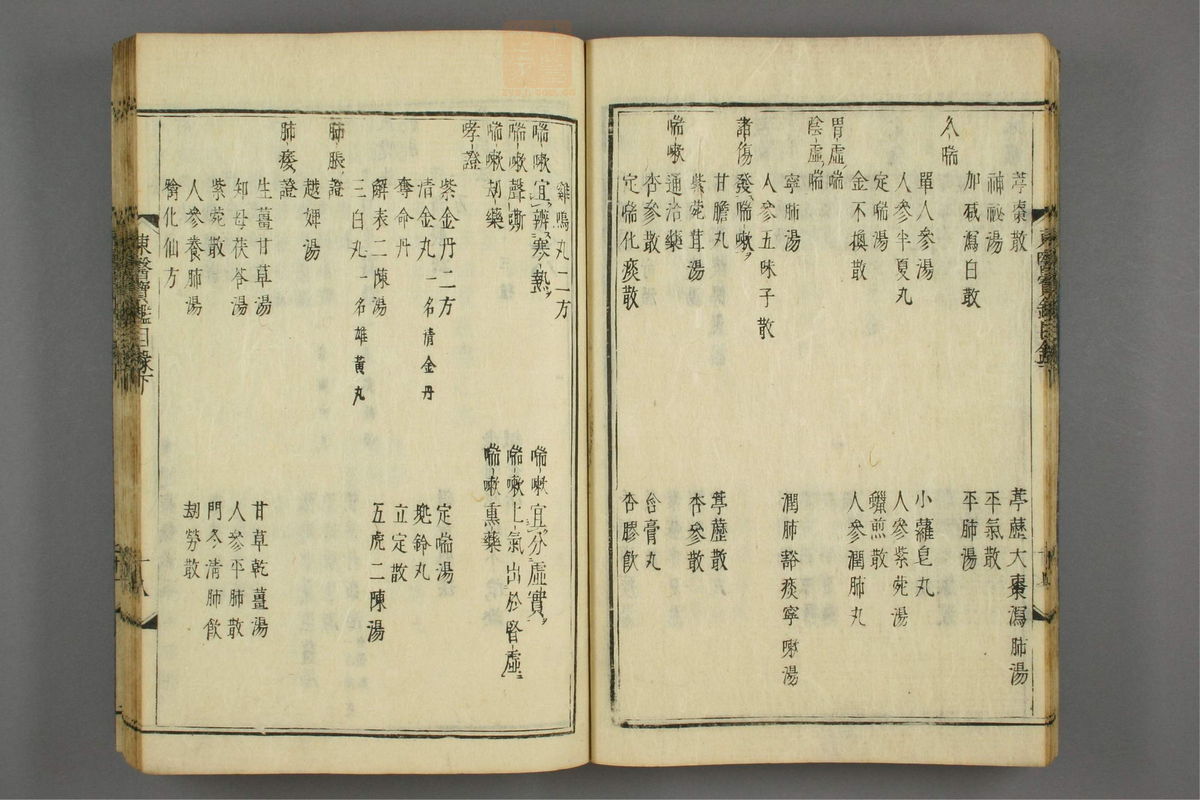 葶棗散　葶藶大棗瀉肺湯
神祕湯　平氣散
加減瀉白散　平肺湯
久喘
單人參湯　小蘿皂丸
人參半夏丸　人參紫菀湯
定喘湯　蠟煎散
金不換散　人參潤肺丸
胃虛喘
陰虛喘
寧肺湯　潤肺豁痰寧嗽湯
人參五味子散
諸傷發喘嗽
甘膽丸　葶藶散
紫菀茸湯　杏參散
喘嗽通治藥
杏參散　含膏丸
定喘化痰散　杏膠飲
東醫寶鑑目錄
雞鳴丸二方
喘嗽宜辨寒熱　喘嗽宜分虛實
喘嗽聲嘶　喘嗽上氣出於腎虛
喘嗽劫藥　喘嗽熏藥
哮證
紫金丹二方　定喘湯
清金丸名清金丹　兜鈴丸
奪命丹　立定散
解表二陳湯　五虎二陳湯
三白丸名雄黃丸
肺脹證
越婢湯
肺痿證
生薑甘草湯　甘草乾薑湯
知母茯苓湯　人參平肺散
紫菀散　門冬清肺飲
人參養肺湯　劫勞散
化仙方
東醫寶鑑目錄下
十八